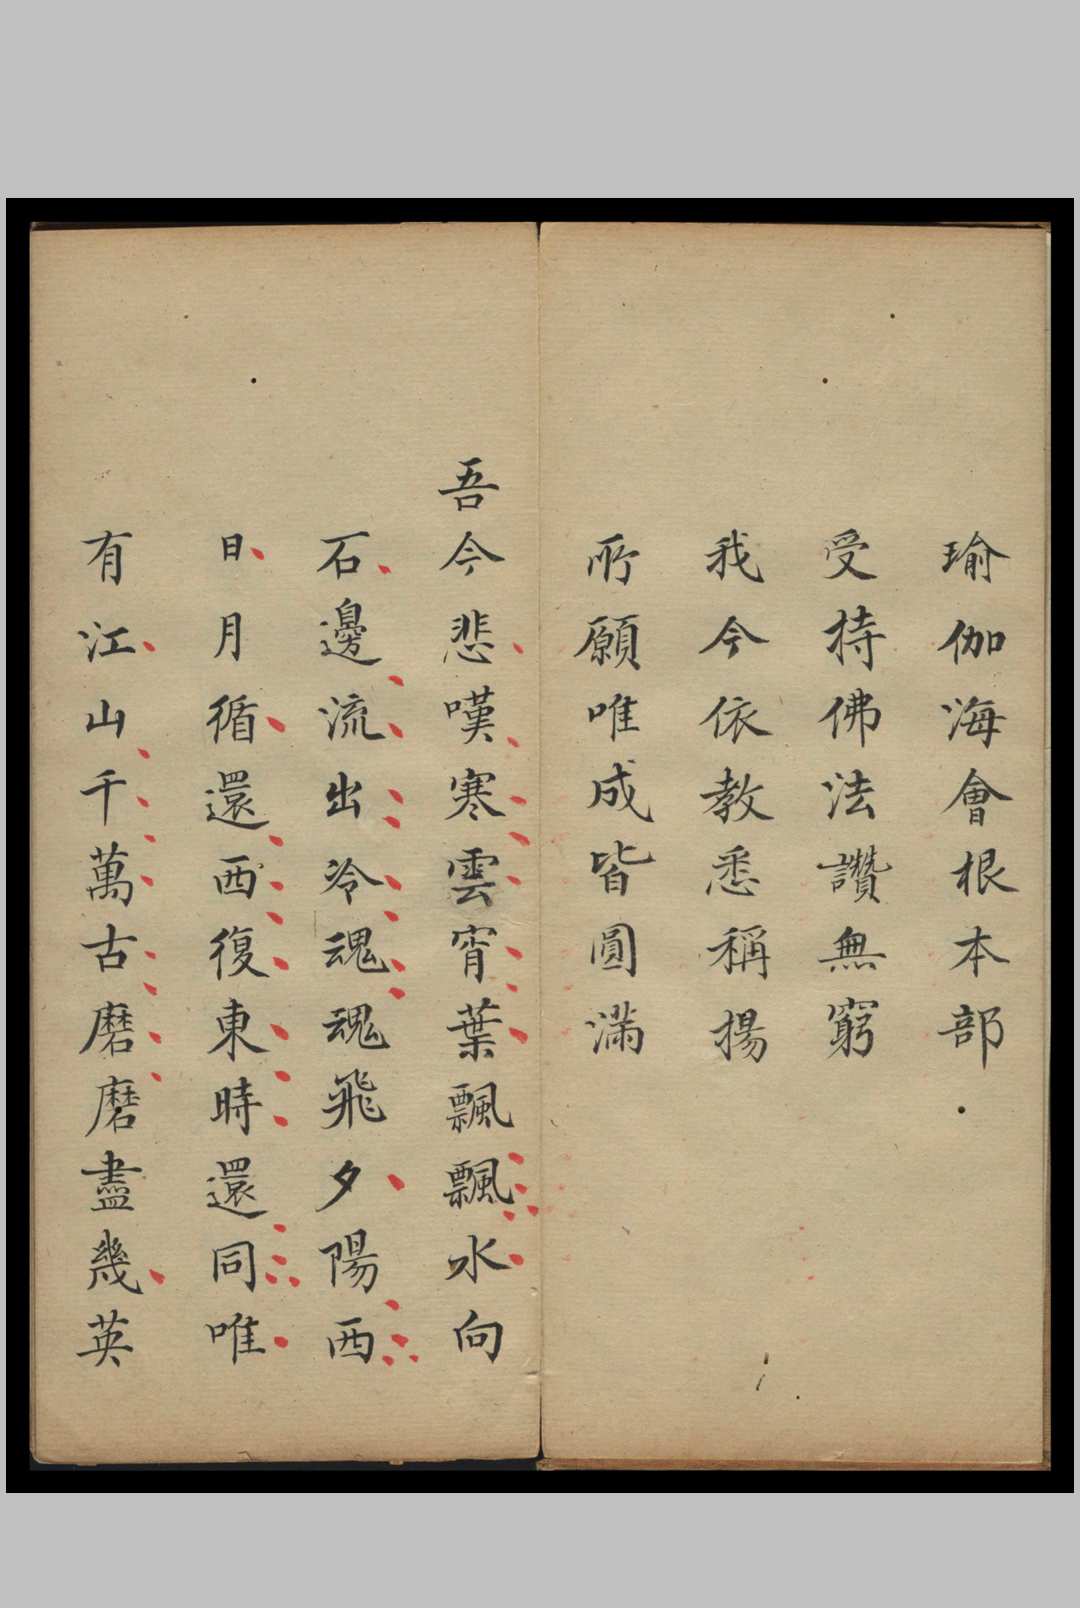 瑜伽海會根本部
受持佛法讚無窮
我今依教悉稱揚
所願唯成皆圓滿
吾今悲嘆寒雲宵葉飄飄水向
石邊流出冷魂魂飛夕陽西
日月循還西復東時還同唯
有江山千萬古磨磨盡幾英